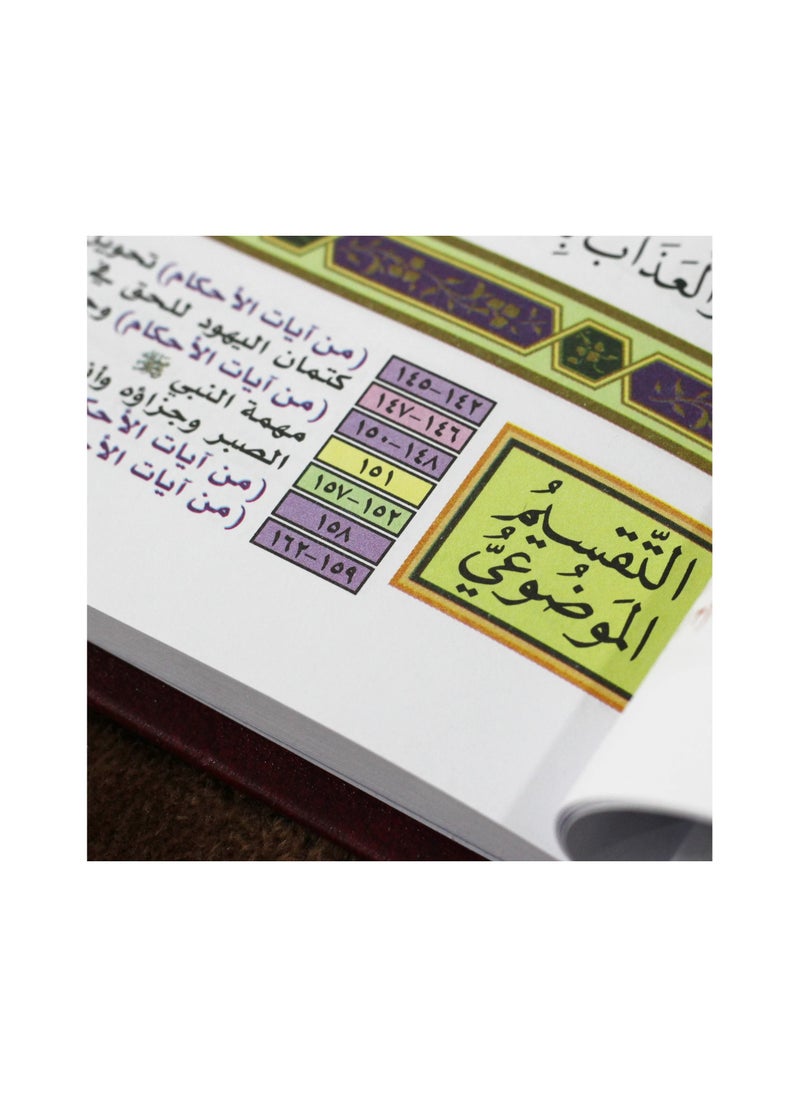 وَالْعَذَابَ
التَّقسِيمُ
المَوضُوعِيُّ
١٤٢-١٤٥ (من آيات الأحكام) تحويل
١٤٦-١٤٧ كتمان اليهود للحق في
١٤٨-١٥٠ (من آيات الأحكام)
١٥١ مهمة النبي ﷺ
١٥٢-١٥٧ الصبر وجزاؤه
١٥٨ (من آيات
١٥٩-١٦٢ (من آيات